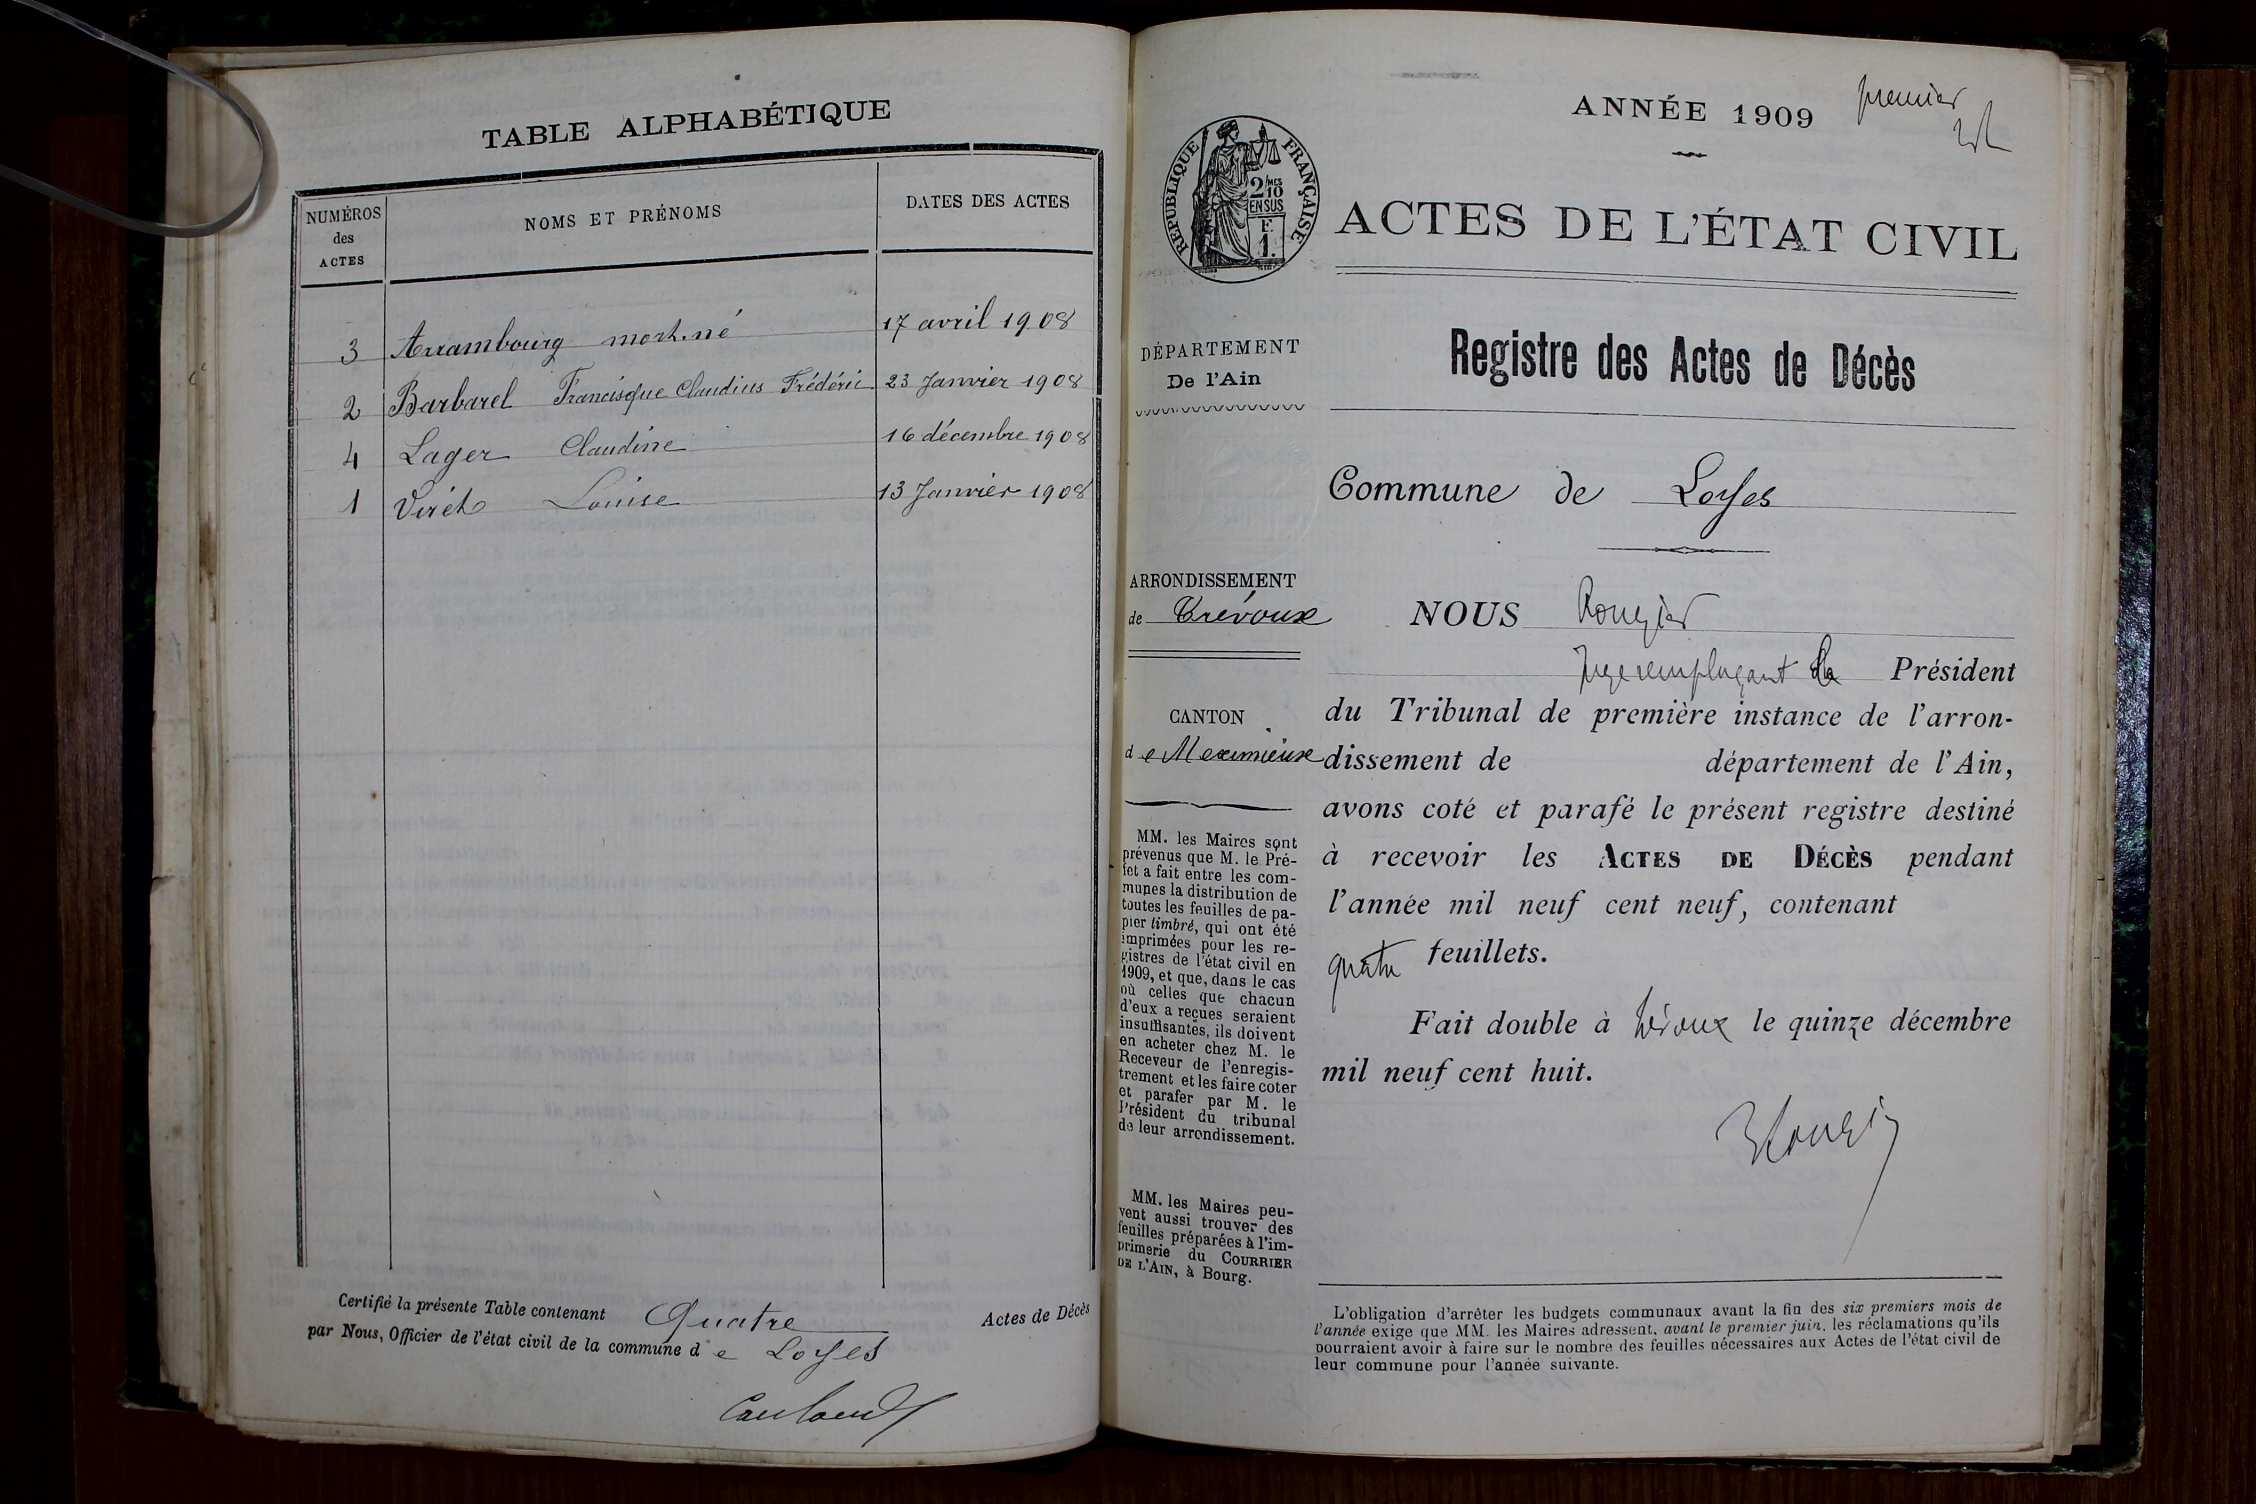 TABLE ALPHABÉTIQUE
NUMÉROS
des
ACTES
NOMS ET PRÉNOMS
DATES DES ACTES
3 Arrambourg mort-né 17 avril 1908
2 Barbarel Francisque Claudius Frédéric 23 Janvier 1908
4 Lager Claudine 16 décembre 1908
1 Viret Louise 13 Janvier 1908
Certifié la présente Table contenant Quatre Actes de Décès
par Nous, Officier de l'état civil de la commune de Loyes
ANNÉE 1909
premier
RÉPUBLIQUE FRANÇAISE
2/10 MES
EN SUS
F.
1.
ACTES DE L'ÉTAT CIVIL
DÉPARTEMENT
De l'Ain
Registre des Actes de Décès
Commune de Loyes
ARRONDISSEMENT
de Trévoux
CANTON
de Meximieux
MM. les Maires sont
prévenus que M. le Pré-
fet a fait entre les com-
munes la distribution de
toutes les feuilles de pa-
pier timbré, qui ont été
imprimées pour les re-
gistres de l'état civil en
1909, et que, dans le cas
où celles que chacun
d'eux a reçues seraient
insuffisantes, ils doivent
en acheter chez M. le
Receveur de l'enregis-
trement et les faire coter
et parafer par M. le
Président du tribunal
de leur arrondissement.
MM. les Maires peu-
vent aussi trouver des
feuilles préparées à l'im-
primerie du COURRIER
DE L'AIN, à Bourg.
NOUS Rougier
Juge remplaçant le Président
du Tribunal de première instance de l'arron-
dissement de département de l'Ain,
avons coté et parafé le présent registre destiné
à recevoir les ACTES DE DÉCÈS pendant
l'année mil neuf cent neuf, contenant
quatre feuillets.
Fait double à Trévoux le quinze décembre
mil neuf cent huit.
Rougier
L'obligation d'arrêter les budgets communaux avant la fin des six premiers mois de
l'année exige que MM. les Maires adressent, avant le premier juin, les réclamations qu'ils
pourraient avoir à faire sur le nombre des feuilles nécessaires aux Actes de l'état civil de
leur commune pour l'année suivante.